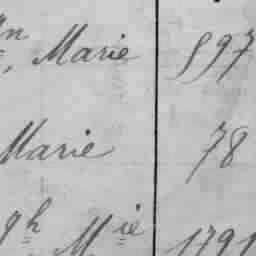 n, Marie 597
Marie 78
gh Mie 1791